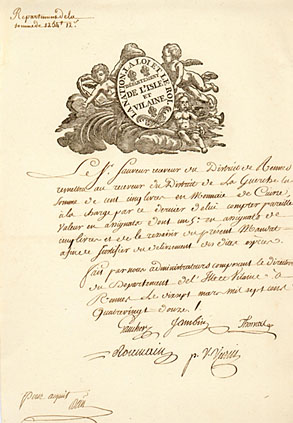 Repartement de la
somme de 1254# 12s
LA NATION, LA LOI ET LE ROI,
DÉPARTEMENT
DE L'ISLE
ET
VILAINE
Le Sr receveur du District de Rennes
remettra au receveur du District de La Guerche la
Somme de cent livres en Monnoie de Cuivre,
à la charge par ce dernier de lui compter pareille
Valeur en assignats dont un en assignats de
cinq livres et de le remettre du présent Mandat
afin de justifier du des dites espèces.
fait par nous administrateurs composant le directoire
du Département de l'Ille et Vilaine à
Rennes le vingt mars mil sept cent
Quatrevingt douze.
pour acquit